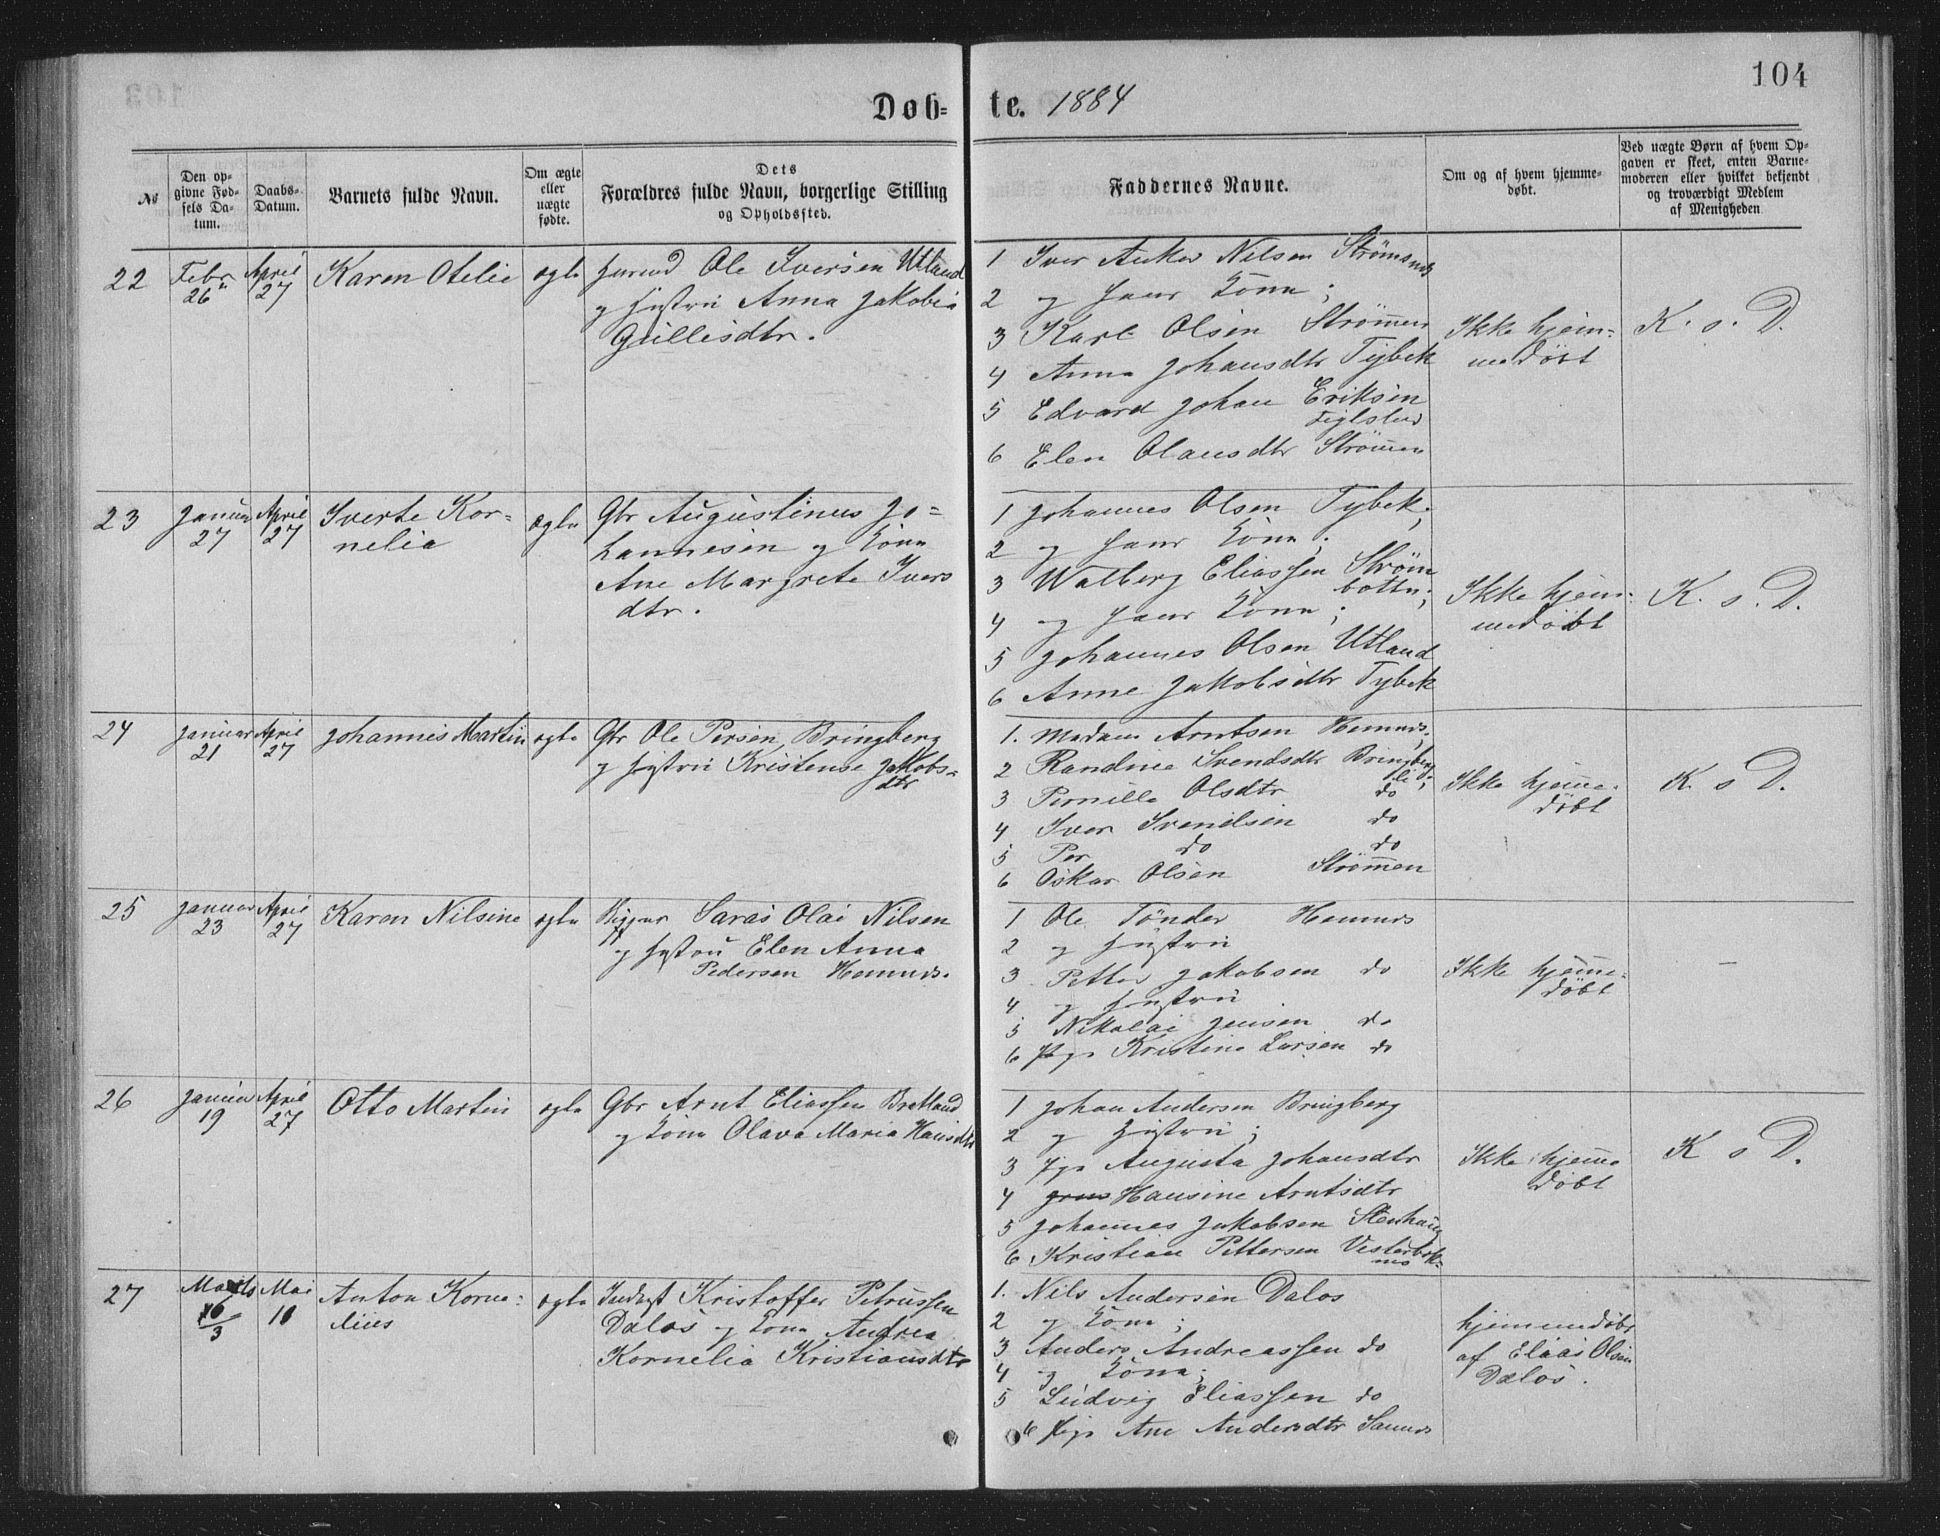 104
Døb-te. 1884
No
Den op-
givne Fød-
sels Da-
tum.
Daabs-
Datum.
Barnets fulde Navn.
Om ægte
eller
uægte
fødte.
Dets
Forældres fulde Navn, borgerlige Stilling
og Opholdssted.
Faddernes Navne.
Om og af hvem hjemme-
døbt.
Ved uægte Børn af hvem Op-
gaven er skeet, enten Barne-
moderen eller hvilket bekjendt
og troværdigt Medlem
af Menigheden
22
Febr
26
April
27
Karen Otelie
ægte
Ole Iversen Utland
og Hustru Anna Jakobia
Gullisdtr.
1 Iver Anker Nilsen Strømsnes
2 og hans Kone;
3 Karl Olsen Strømen
4 Anna Johansdtr Tybek
5 Edvard Johan Eriksen
6 Elen Olausdtr Strømen
Ikke hjem-
medøbt
K. s. D.
23
Januar
27
April
27
Iverte Kor-
nelia
ægte
Gbr Augustinus Jo-
hannesen og Kone
Ane Margrete Ivers
dtr.
1 Johannes Olsen Tybek;
2 og hans Kone;
3 Walberg Eliassen Strøm
botn;
4 og hans Kone;
5 Johannes Olsen Utland
6 Anne Jakobsdtr Tybek
Ikke hjem-
medøbt
K. s. D.
24
Januar
21
April
27
Johannes Martin
ægte
Gbr Ole Persen Bringberg
og Hustru Kristense Jakobs-
dtr
1. Madam Arntsen Hemnes;
2 Randine Svendsdtr Bringberg
li;
3 Pernille Olsdtr do
4 Iver Svendsen do
5 Per do do
6 Oskar Olsen Strømmen
Ikke hjemme-
døbt
K. s D.
25
Januar
23
April
27
Karen Nilsine
ægte
Saras Olai Nilsen
og Hustru Elen Anna
Pedersen Hemnes.
1 Ole Tønder Hemnes
2 og Hustru
3 Petter Jakobsen do
4 og Hustru
5 Nikolai Jensen do
6 Pige Kristine Larsen do
Ikke hjemme-
døbt
–
26
Januar
19
April
27
Otto Martin
ægte
Gbr Arnt Eliassen Bratland
og Kone Olava Maria Hansdtr
1 Johan Andersen Bringberg
2 og Hustru;
3 Pige Augusta Johansdtr
4 Hansine Arntsdtr
5 Johannes Jakobsen Stenhaug
6 Kristian Pettersen Vesterbotn-
nes
Ikke hjemme
døbt
K s D.
27
Marts
16/3
Mai
18
Anton Korne-
lius
ægte
Inderst Kristoffer Petrussen
Dalos og Kone Andrea
Kornelia Kristiansdtr
1. Nils Andersen Dalos
2 og Kone;
3 Anders Andreassen do
4 og Kone;
5 Ludvig Eliassen do
6 Pige Ane Andersdtr Sannes
hjemmedøbt
af Elias Olsen
Dalos.